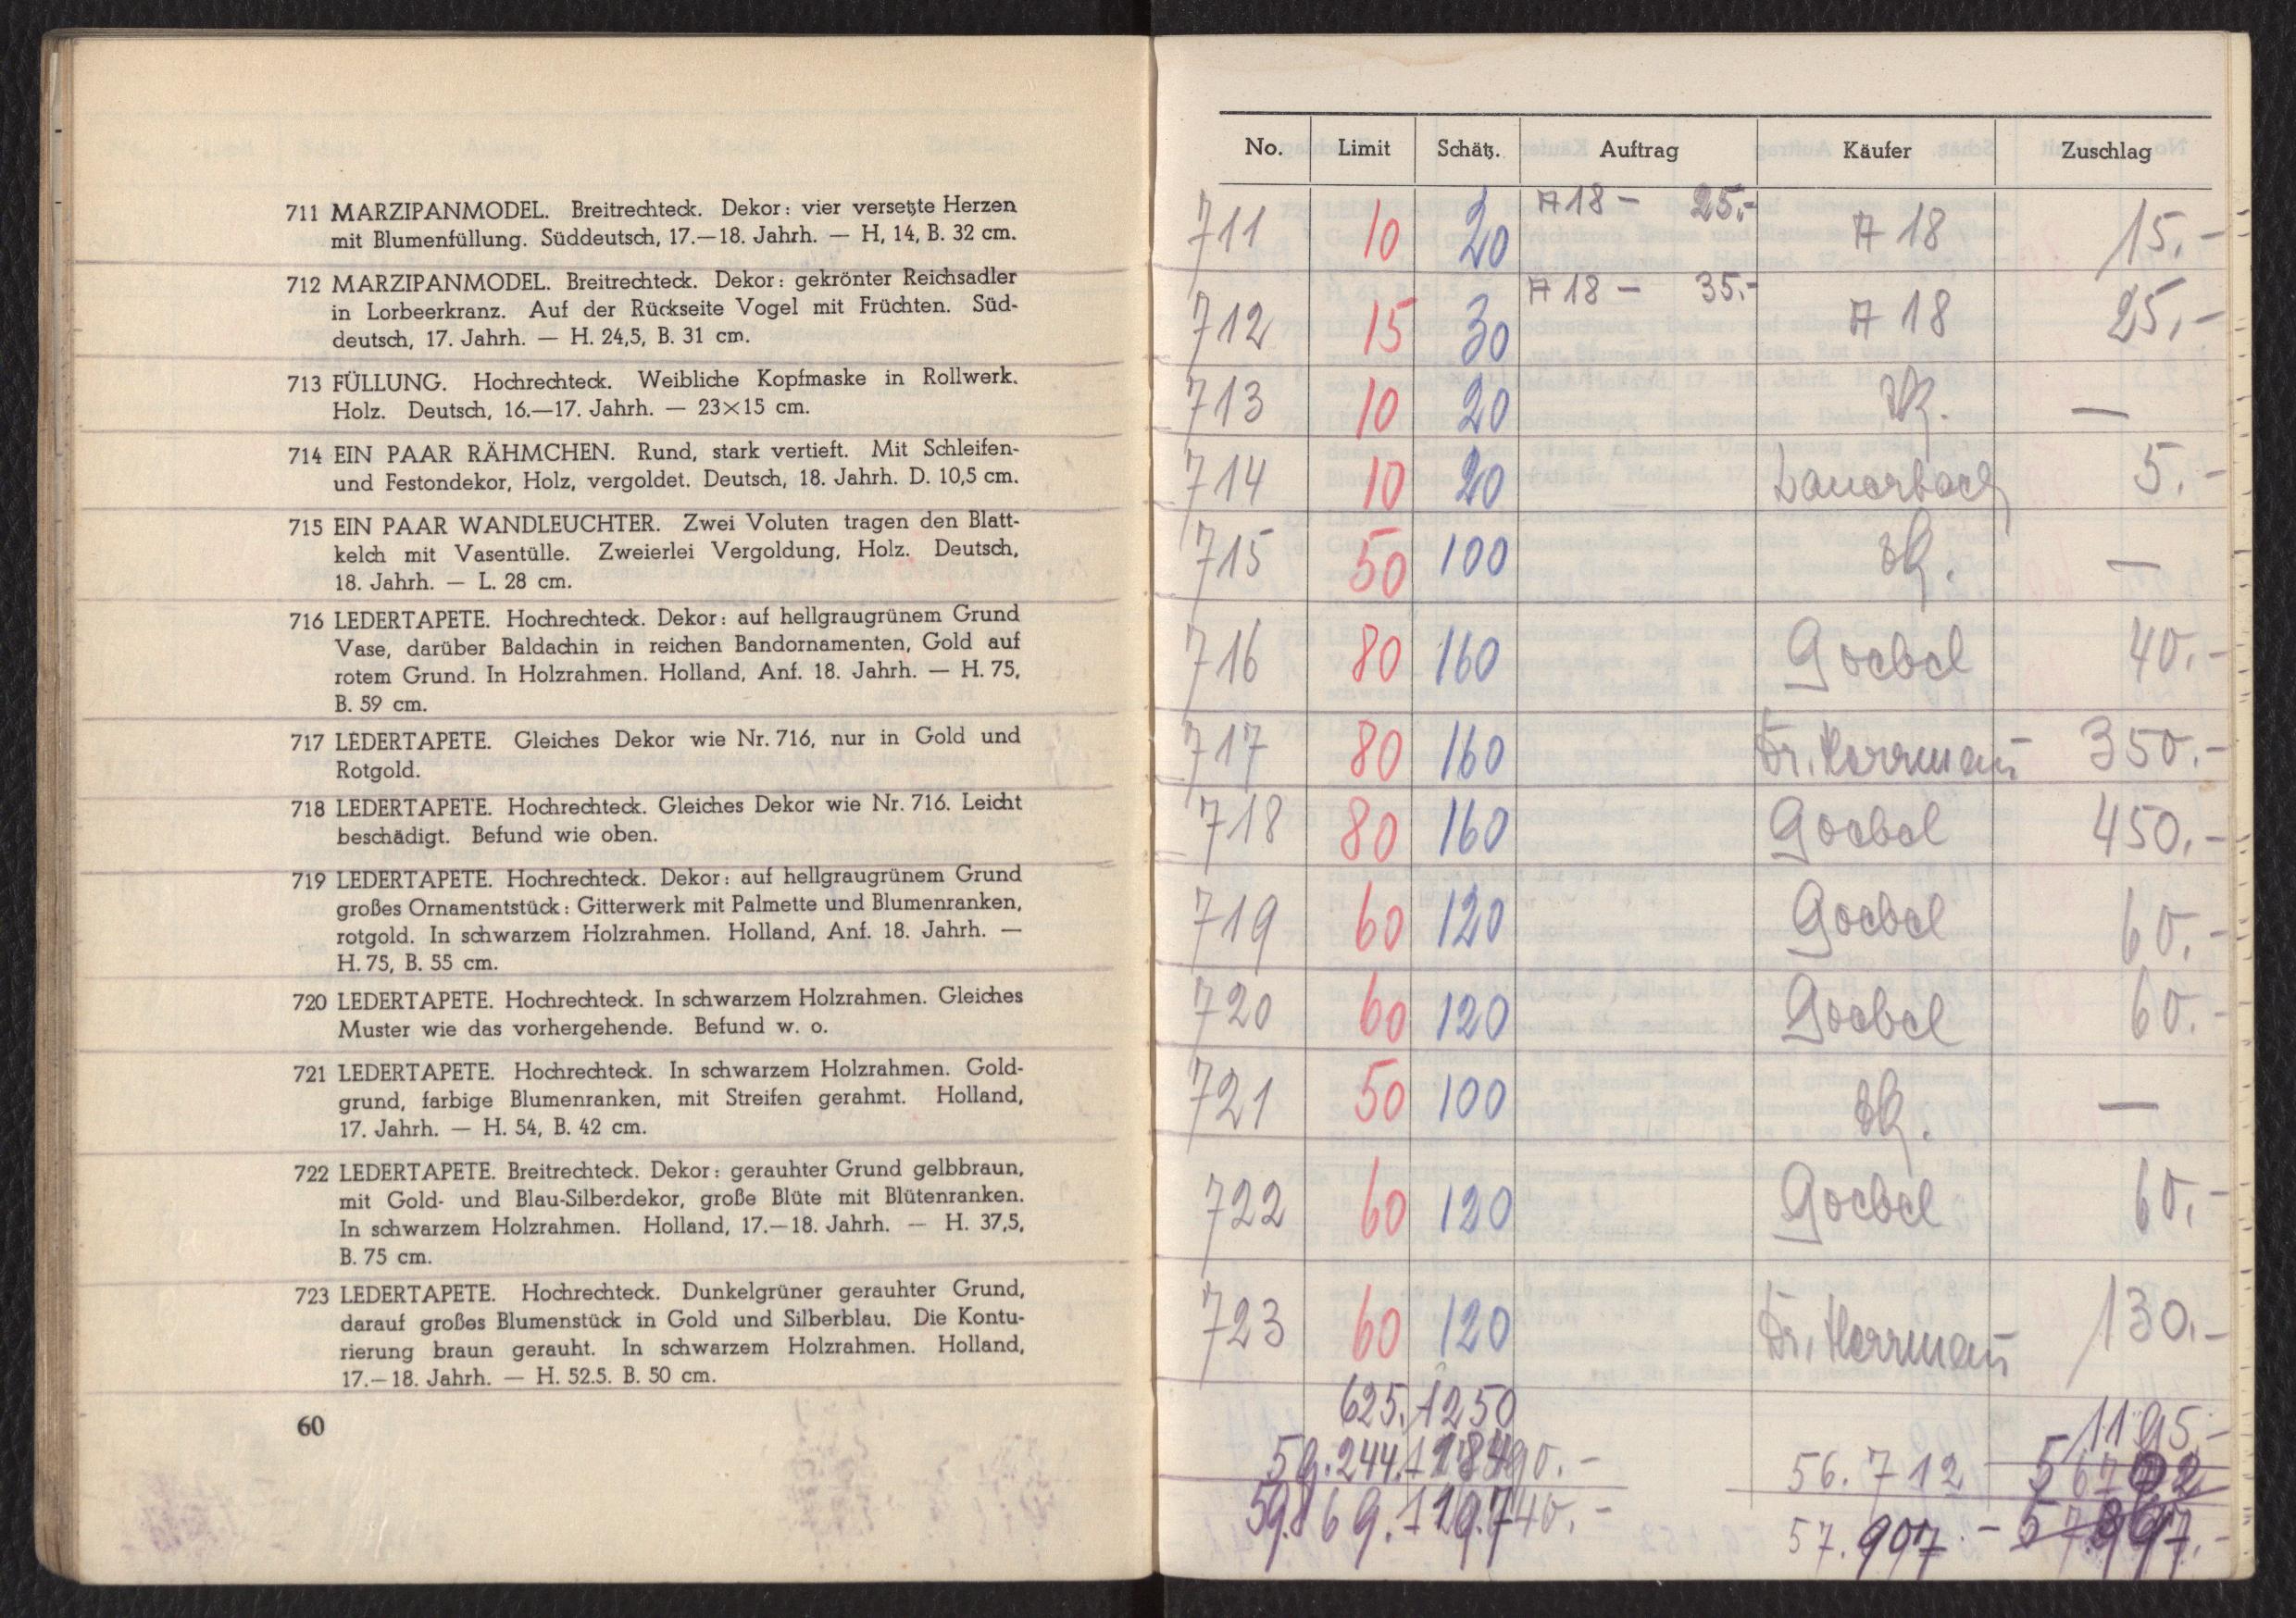 711 MARZIPANMODEL. Breitrechteck. Dekor: vier versetzte Herzen
mit Blumenfüllung. Süddeutsch, 17.—18. Jahrh. — H, 14, B. 32 cm.
712 MARZIPANMODEL. Breitrechteck. Dekor: gekrönter Reichsadler
in Lorbeerkranz. Auf der Rückseite Vogel mit Früchten. Süd-
deutsch, 17. Jahrh. — H. 24,5, B. 31 cm.
713 FÜLLUNG. Hochrechteck. Weibliche Kopfmaske in Rollwerk.
Holz. Deutsch, 16.—17. Jahrh. — 23×15 cm.
714 EIN PAAR RÄHMCHEN. Rund, stark vertieft. Mit Schleifen-
und Festondekor, Holz, vergoldet. Deutsch, 18. Jahrh. D. 10,5 cm.
715 EIN PAAR WANDLEUCHTER. Zwei Voluten tragen den Blatt-
kelch mit Vasentülle. Zweierlei Vergoldung, Holz. Deutsch,
18. Jahrh. — L. 28 cm.
716 LEDERTAPETE. Hochrechteck. Dekor: auf hellgraugrünem Grund
Vase, darüber Baldachin in reichen Bandornamenten, Gold auf
rotem Grund. In Holzrahmen. Holland, Anf. 18. Jahrh. — H. 75,
B. 59 cm.
717 LEDERTAPETE. Gleiches Dekor wie Nr. 716, nur in Gold und
Rotgold.
718 LEDERTAPETE. Hochrechteck. Gleiches Dekor wie Nr. 716. Leicht
beschädigt. Befund wie oben.
719 LEDERTAPETE. Hochrechteck. Dekor: auf hellgraugrünem Grund
großes Ornamentstück: Gitterwerk mit Palmette und Blumenranken,
rotgold. In schwarzem Holzrahmen. Holland, Anf. 18. Jahrh. —
H. 75, B. 55 cm.
720 LEDERTAPETE. Hochrechteck. In schwarzem Holzrahmen. Gleiches
Muster wie das vorhergehende. Befund w. o.
721 LEDERTAPETE. Hochrechteck. In schwarzem Holzrahmen. Gold-
grund, farbige Blumenranken, mit Streifen gerahmt. Holland,
17. Jahrh. — H. 54, B. 42 cm.
722 LEDERTAPETE. Breitrechteck. Dekor: gerauhter Grund gelbbraun,
mit Gold- und Blau-Silberdekor, große Blüte mit Blütenranken.
In schwarzem Holzrahmen. Holland, 17.—18. Jahrh. — H. 37,5,
B. 75 cm.
723 LEDERTAPETE. Hochrechteck. Dunkelgrüner gerauhter Grund,
darauf großes Blumenstück in Gold und Silberblau. Die Kontu-
rierung braun gerauht. In schwarzem Holzrahmen. Holland,
17.—18. Jahrh. — H. 52.5. B. 50 cm.
60
No. Limit Schätz. Auftrag Käufer Zuschlag
711 10 20 A 18 - 25.- A 18 15.-
712 15 30 A 18 - 35.- A 18 25.-
713 10 20 —
714 10 20 5.-
715 50 100 —
716 80 160 Goebel 40.-
717 80 160 Dr. Herrmann 350.-
718 80 160 Goebel 450.-
719 60 120 Goebel 60.-
720 60 120 Goebel 60.-
721 50 100 —
722 60 120 Goebel 60.-
723 60 120 Dr. Herrmann 130.-
625. 1250 1195.-
59.244. 118490.- 56.712
59.869. 119.740.- 57.907.-